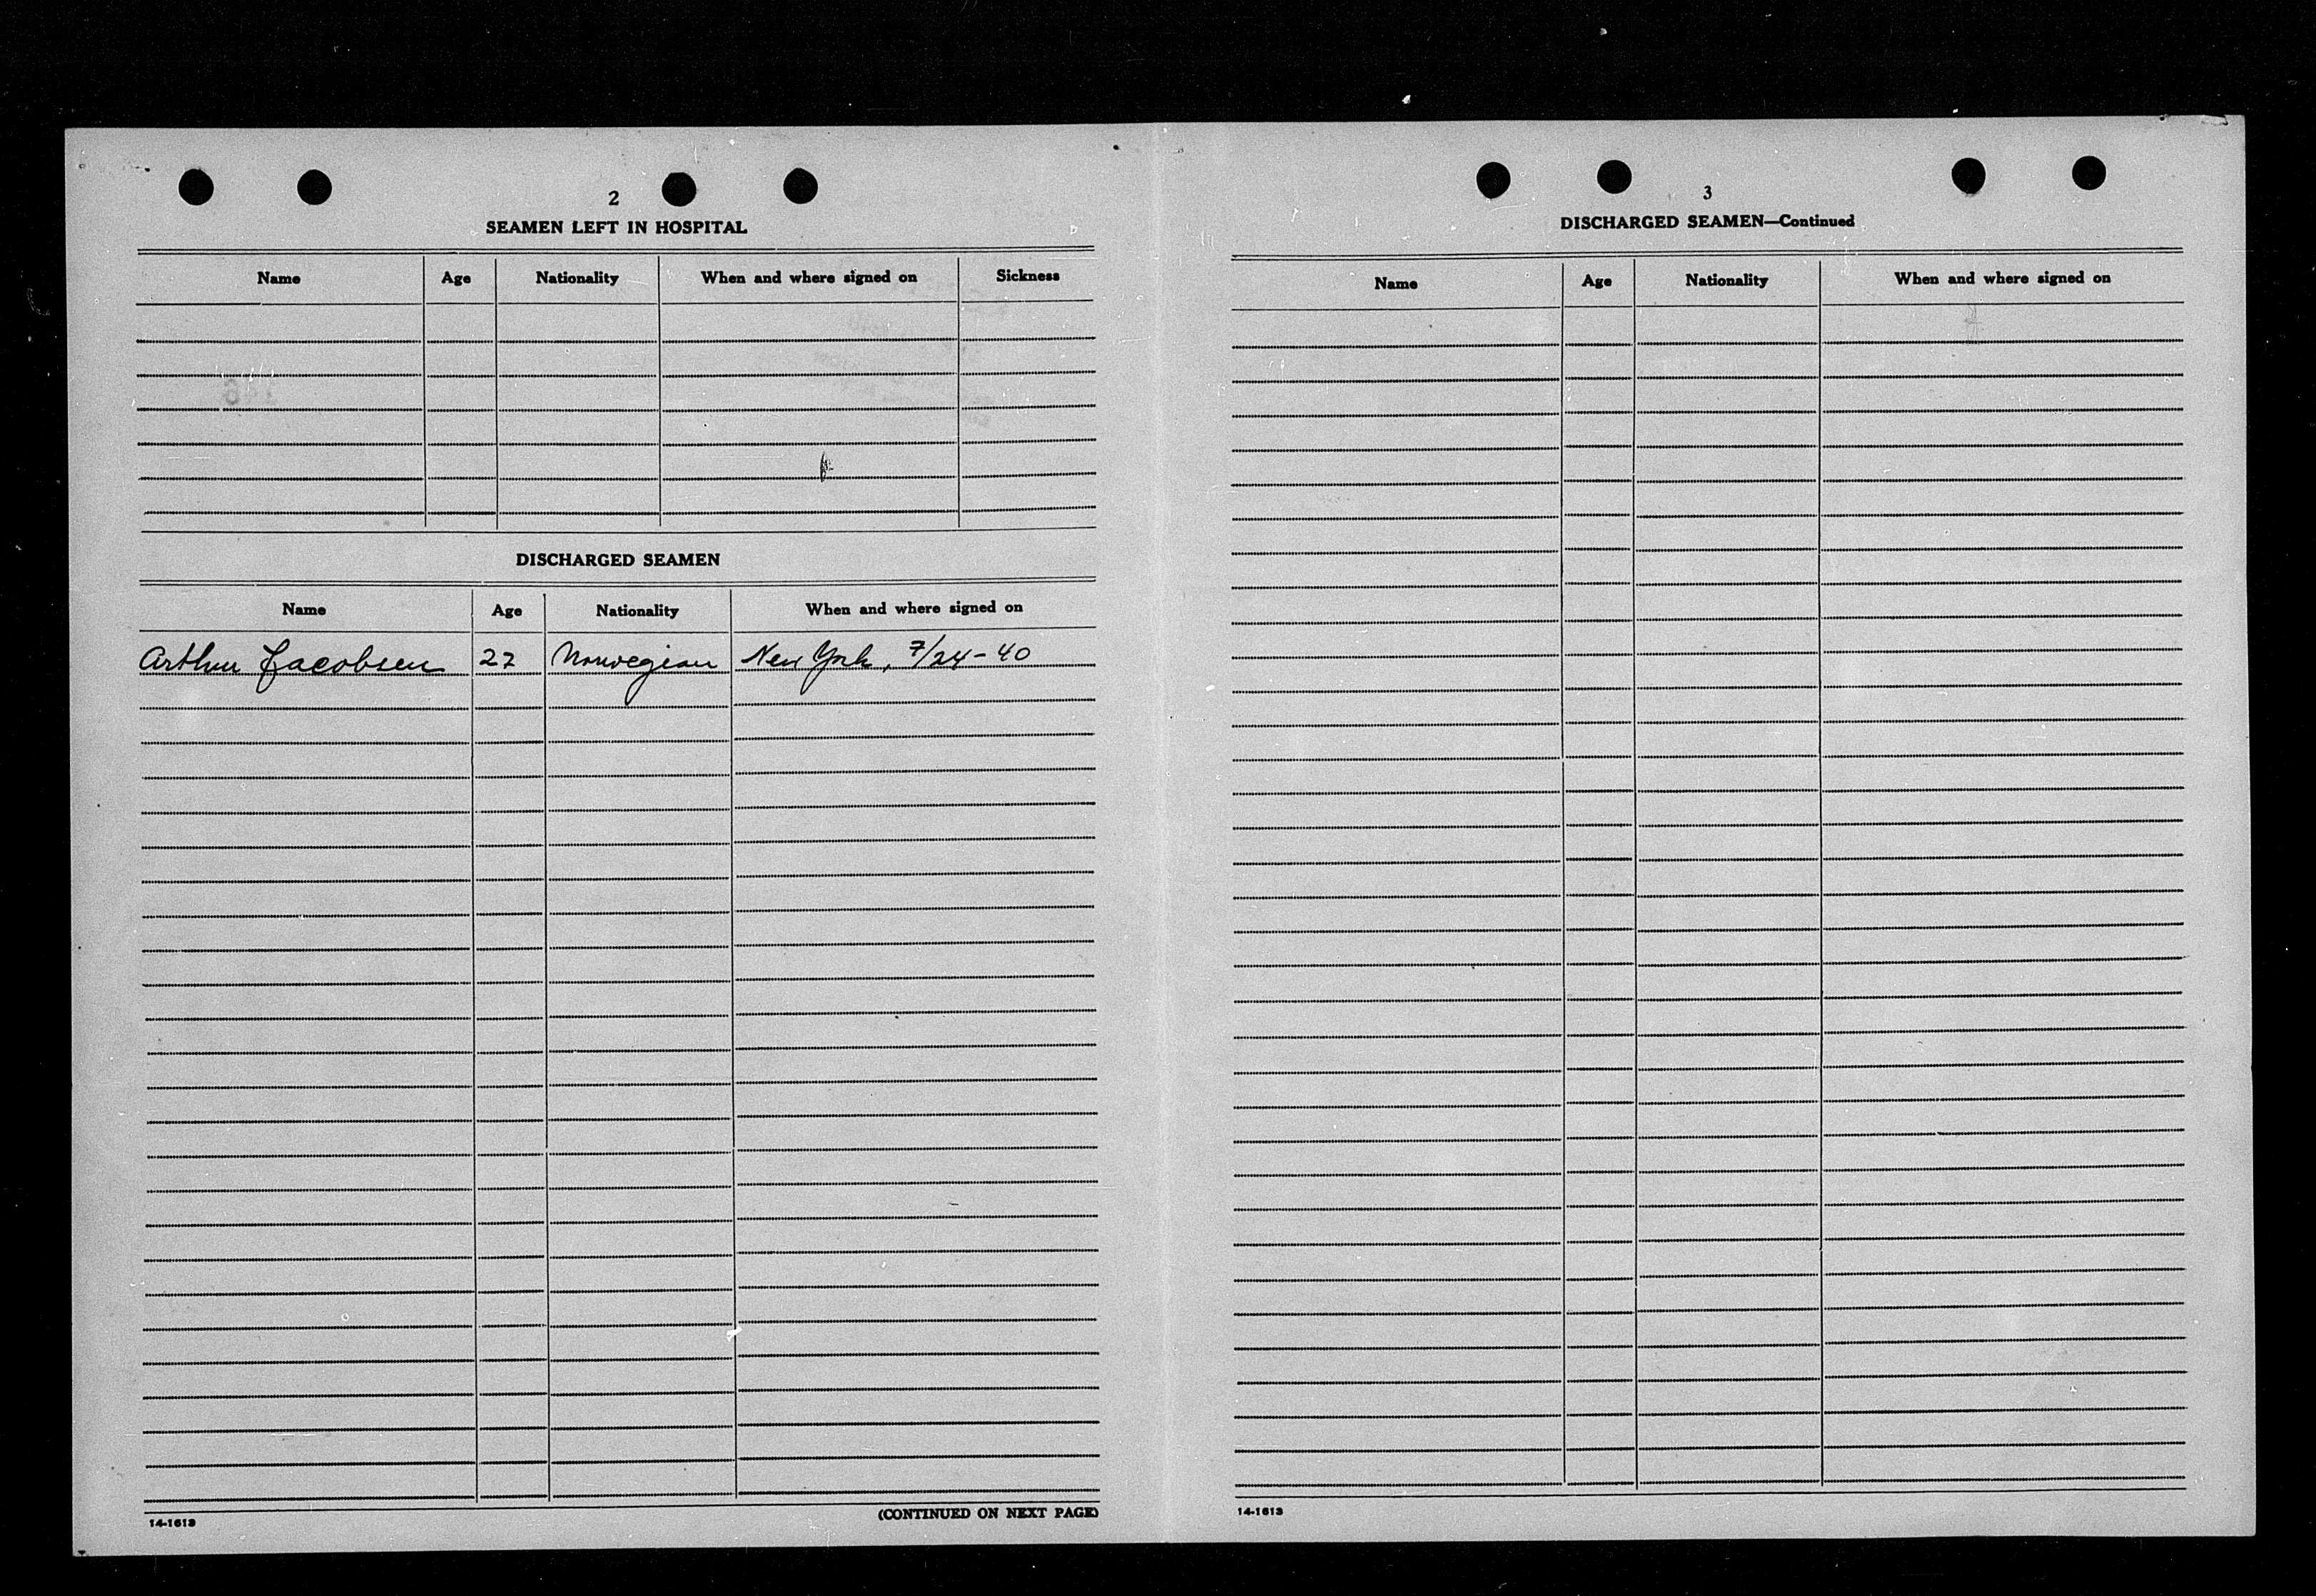 2
SEAMEN LEFT IN HOSPITAL
Name Age Nationality When and where signed on Sickness
DISCHARGED SEAMEN
Name Age Nationality When and where signed on
Arthur Jacobsen 22 Norwegian New York, 7/24-40
(CONTINUED ON NEXT PAGE)
14-1613
3
DISCHARGED SEAMEN—Continued
Name Age Nationality When and where signed on
14-1613